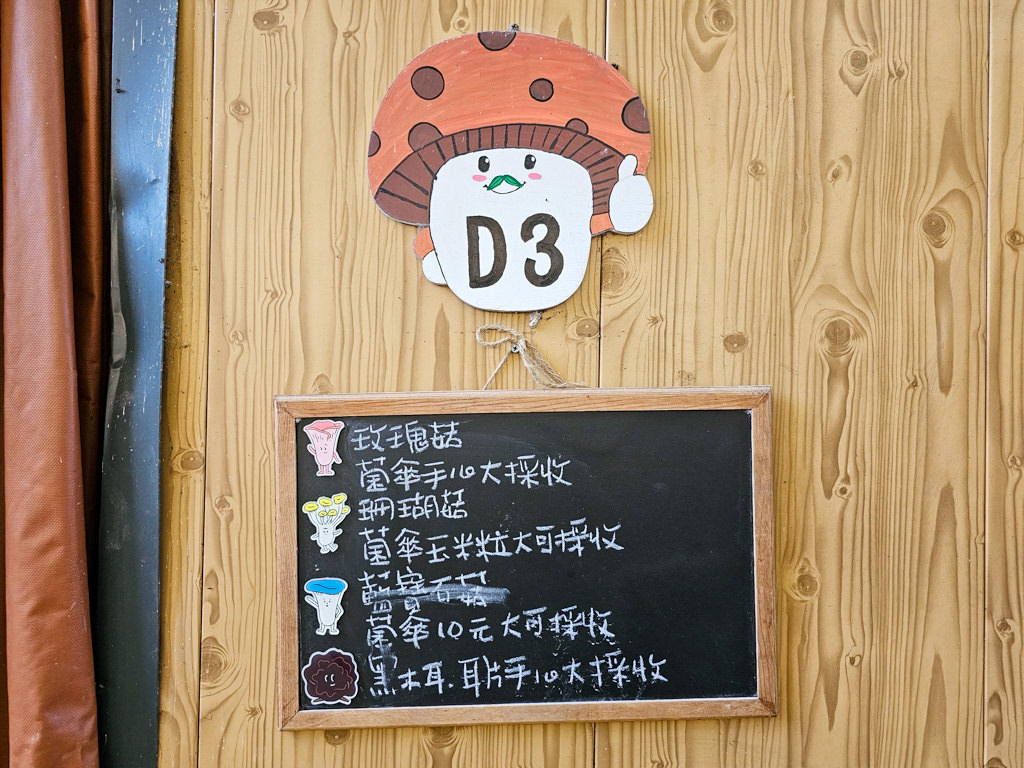 D3
玫瑰菇
菌傘手心大採收
珊瑚菇
菌傘玉米粒大可採收
藍寶石菇
菌傘10元大可採收
黑木耳.耳片手心大採收